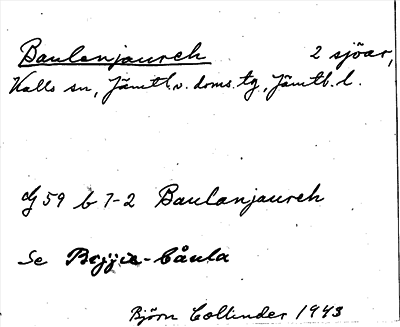 Baulanjaureh 2 sjöar,
Kalls sn, Jämtl.v. doms. tg, Jämtl. l.
59 b 1-2 Baulanjaureh
Se Bejjie-båula
Björn Collinder 1943